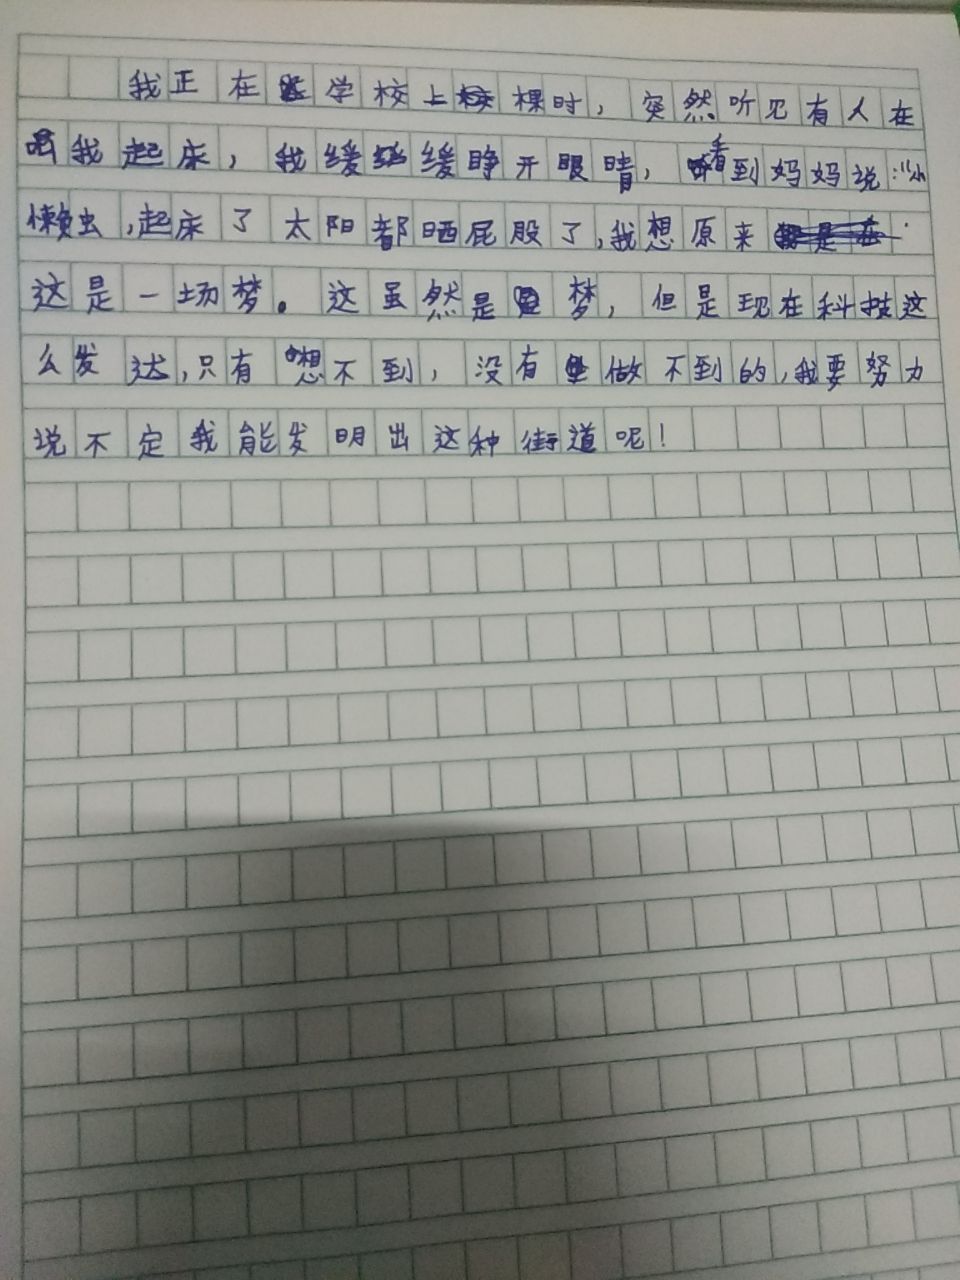 我正在学校上棵时，突然听见有人在
我起床，我缓缓睁开眼晴，看到妈妈说："小
懒虫，起床了太阳都晒屁股了，我想原来
这是一场梦。这虽然是梦，但是现在科技这
么发达，只有想不到，没有做不到的，我要努力
说不定我能发明出这种街道呢！